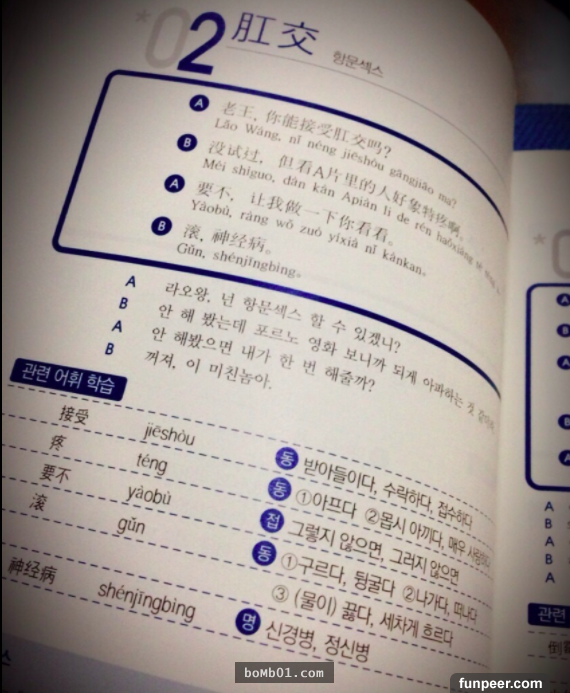 02 肛交
항문섹스
A 老王, 你能接受肛交吗?
Lǎo Wáng, nǐ néng jiēshòu gāngjiāo ma?
B 没试过, 但看A片里的人好象特疼啊。
Méi shìguo, dàn kàn Apiān li de rén hǎoxiàng tè
A 要不, 让我做一下你看看。
Yàobù, ràng wǒ zuò yíxià nǐ kànkan.
B 滚, 神经病。
Gǔn, shénjīngbìng.
A 라오왕, 넌 항문섹스 할 수 있겠니?
B 안 해 봤는데 포르노 영화 보니까 되게 아파하는 것
A 안 해봤으면 내가 한 번 해줄까?
B 꺼져, 이 미친놈아.
관련 어휘 학습
接受 jiēshòu 동 받아들이다, 수락하다, 접수하다
疼 téng 동 ①아프다 ②몹시 아끼다, 매우
要不 yàobù 접 그렇지 않으면, 그러지 않으면
滚 gǔn 동 ①구르다, 뒹굴다 ②나가다, 떠나다
③ (물이) 끓다, 세차게 흐르다
神经病 shénjīngbìng 명 신경병, 정신병
A
B
A
B
A
B
A
B
A
관련
boMb01.com
funpeer.com